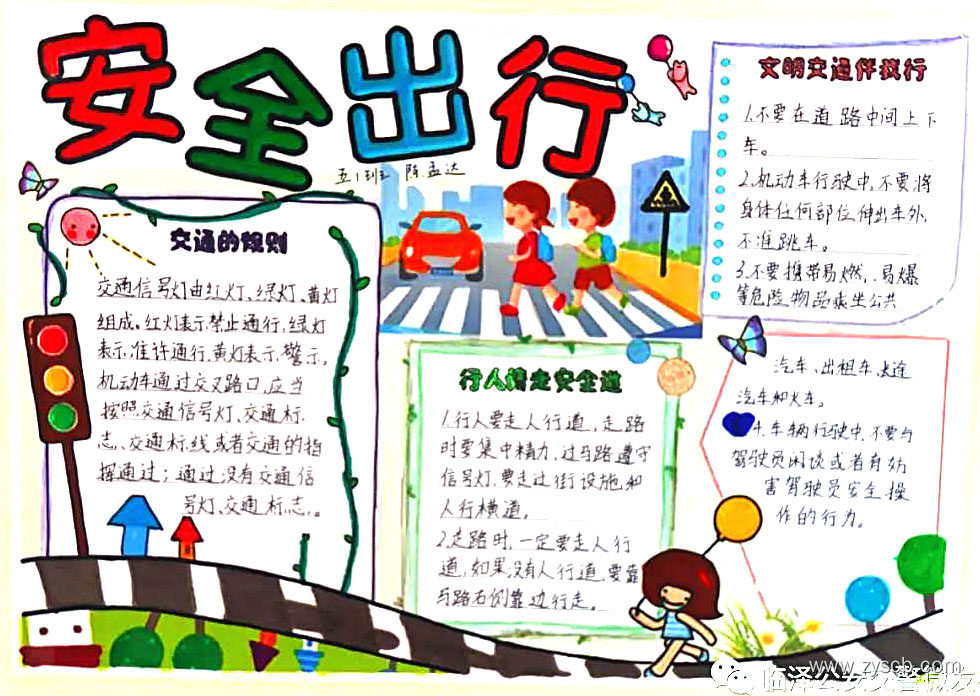 安全出行
五1班 陈孟达
交通的规则
交通信号灯由红灯、绿灯、黄灯
组成。红灯表示禁止通行,绿灯
表示准许通行,黄灯表示警示。
机动车通过交叉路口,应当
按照交通信号灯、交通标
志、交通标线或者交通的指
挥通过;通过没有交通信
号灯、交通标志,。
行人请走安全道
1.行人要走人行道,走路
时要集中精力,过马路遵守
信号灯,要走过街设施,和
人行横道。
2.走路时,一定要走人行
道,如果没有人行道,要靠
马路右侧靠边行走。
文明交通伴我行
1.不要在道路中间上下
车。
2.机动车行驶中,不要将
身体任何部位伸出车外,
不准跳车。
3.不要携带易燃、易爆
等危险物品乘坐公共
汽车、出租车、长途
汽车和火车。
4.车辆行驶中,不要与
驾驶员闲谈或者有妨
害驾驶员安全操
作的行为。
www.zyscb.com